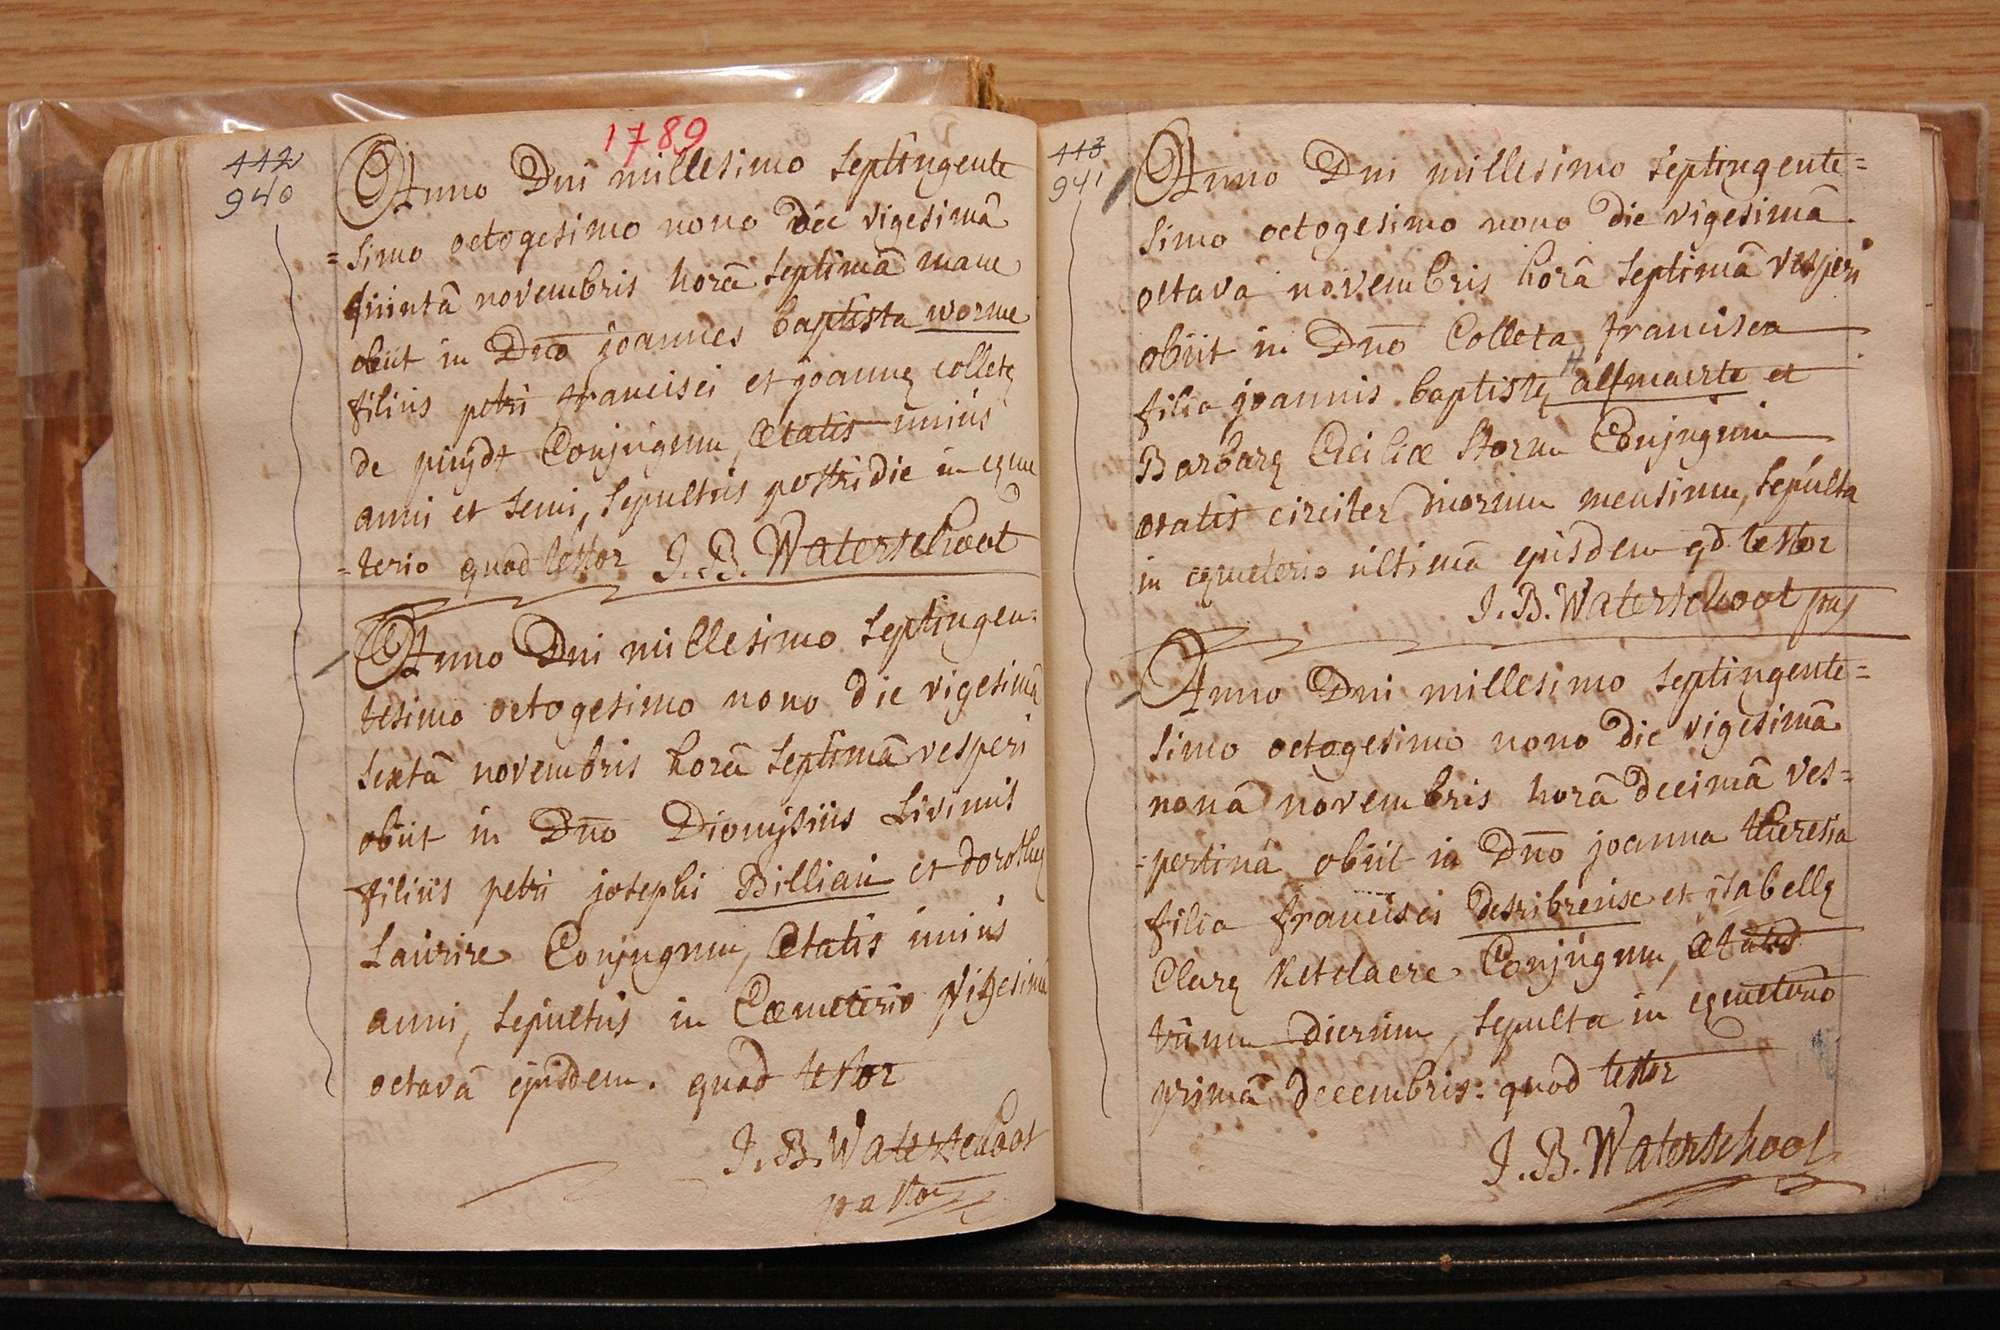 1789
442
940
Anno Dni millesimo septingente
=simo octogesimo nono die vigesimâ
quintâ novembris horâ septimâ mane
obiit in Dno joannes baptista worme
filius petri francisci et joannę colletę
de puijdt Conjugum, Ætatis unius
anni et semi, sepultus postridie in cęme
=terio quod testor J. B. Waterschoot
Anno Dni millesimo septingen=
tesimo octogesimo nono die vigesimâ
sextâ novembris horâ septimâ vesperi
obiit in Dno Dionijsius Livinus
filius petri josephi Billiau et dorotheę
Laurire Conjugum, Ætatis unius
anni, sepultus in Cœmeterio vigesimâ
octavâ ejusdem. quod testor
J. B. Waterschoot
pastor
443
941
Anno Dni millesimo septingente=
simo octogesimo nono die vigesimâ
octavâ novembris horâ septimâ vesperi
obiit in Dno Colleta francisca
filia joannis baptistę alfmaerte et
Barbarę Ciciliæ Storm Conjugum
ætatis circiter duorum mensium, sepulta
in cęmeterio ultimâ ejusdem qd testor
J. B. Waterschoot pas
Anno Dni millesimo septingente=
simo octogesimo nono die vigesimâ
nonâ novembris horâ decimâ ves=
=pertinâ obiit in Dno joanna theresia
filia francisci Destribreise et jsabellę
Clarę Ketelaere Conjugum, ætatis
trium dierum, sepulta in cęmeterio
primâ decembris. quod testor
J. B. Waterschoot